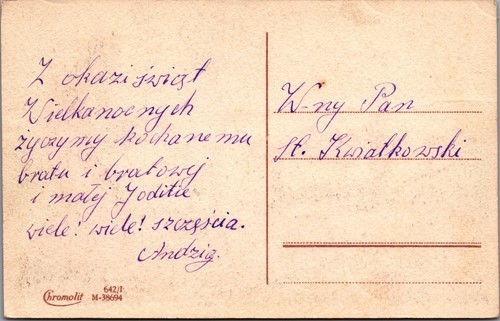 Z okazi świąt
Wielkanocnych
życzymy kochanemu
bratu i bratowej
i małej Joditie
wiele! wiele! szczęścia.
Andzig.
W-ny Pan
St. Kwiatkowski
Chromolit
642/I
M-38694